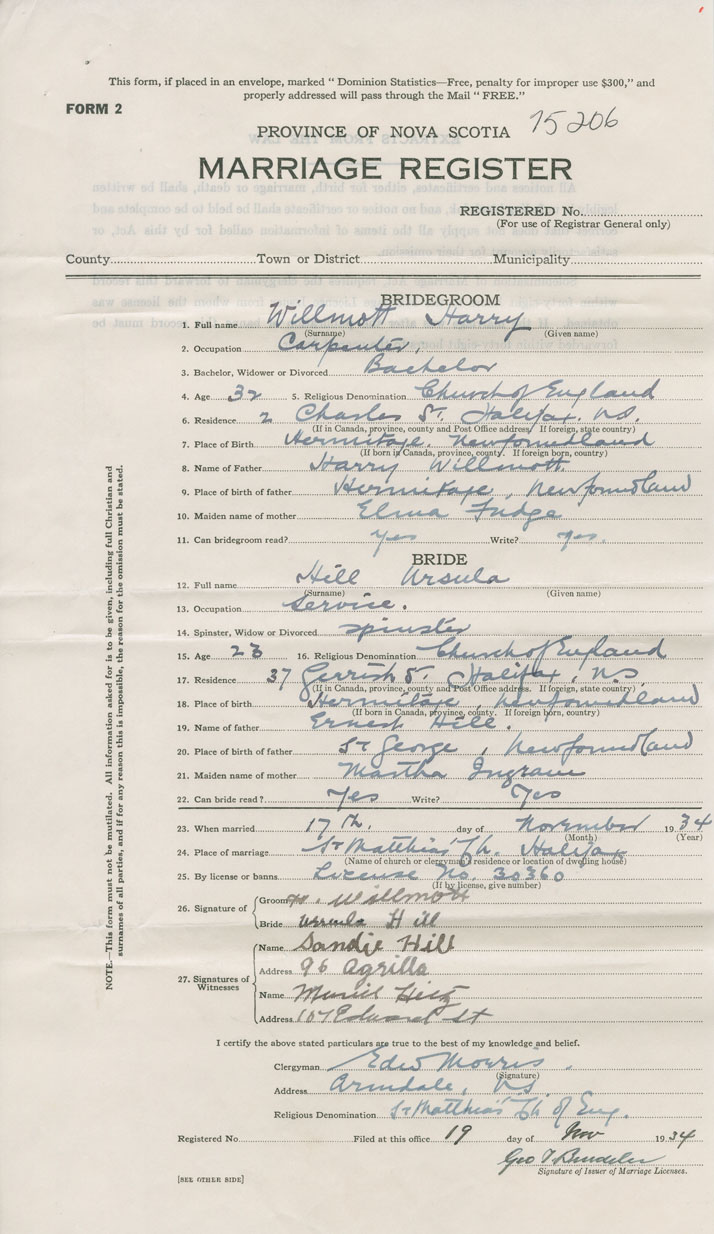 This form, if placed in an envelope, marked "Dominion Statistics—Free, penalty for improper use $300," and
properly addressed will pass through the Mail "FREE."
FORM 2
75206
PROVINCE OF NOVA SCOTIA
MARRIAGE REGISTER
REGISTERED No.
(For use of Registrar General only)
County Town or District Municipality
BRIDEGROOM
1. Full name Willmott Harry
(Surname) (Given name)
2. Occupation Carpenter,
3. Bachelor, Widower or Divorced Bachelor
4. Age 32 5. Religious Denomination Church of England
6. Residence 2 Charles St. Halifax. N.S.
(If in Canada, province, county and Post Office address. If foreign, state country)
7. Place of Birth Hermitage. Newfoundland
(If born in Canada, province, county. If foreign born, country)
8. Name of Father Harry Willmott.
9. Place of birth of father Hermitage, Newfoundland
10. Maiden name of mother Elma Fudge
11. Can bridegroom read? Yes Write? Yes.
BRIDE
12. Full name Hill Ursula
(Surname) (Given name)
13. Occupation Service.
14. Spinster, Widow or Divorced spinster
15. Age 23 16. Religious Denomination Church of England
17. Residence 37 Gerrish St. Halifax, N.S.
(If in Canada, province, county and Post Office address. If foreign, state country)
18. Place of birth Hermitage, Newfoundland
(If born in Canada, province, county. If foreign born, country)
19. Name of father Ernest Hill.
20. Place of birth of father St George, Newfoundland
21. Maiden name of mother Martha Ingram
22. Can bride read? Yes Write? Yes
23. When married 17th. day of November 1934
(Month) (Year)
24. Place of marriage St Matthias Ch. Halifax
(Name of church or clergyman's residence or location of dwelling house)
25. By license or banns License No. 30360
(If by license, give number)
26. Signature of Groom H. Willmott
Bride Ursula Hill
27. Signatures of Witnesses
Name Sandie Hill
Address 96 Agrilla
Name Muriel
Address 107 Edward St
I certify the above stated particulars are true to the best of my knowledge and belief.
Clergyman Edw Morris.
(Signature)
Address Armdale, N.S.
Religious Denomination St Matthias Ch of Eng.
Registered No. Filed at this office 19 day of Nov 1934
Geo T
Signature of Issuer of Marriage Licenses.
[SEE OTHER SIDE]
NOTE.—This form must not be mutilated. All information asked for is to be given, including full Christian and
surnames of all parties, and if for any reason this is impossible, the reason for the omission must be stated.